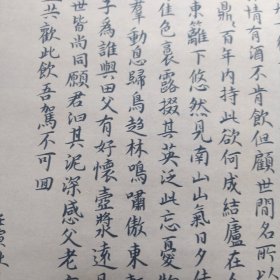 情有酒不肯飲但顧世間名所
鼎百年內持此欲何成結廬在
東籬下悠然見南山山氣日夕
佳色裛露掇其英泛此忘憂物
羣動息歸鳥趨林鳴嘯傲東
子為誰與田父有好懷壺漿遠見
世皆尚同願君汩其泥深感父老
共歡此飲吾駕不可回